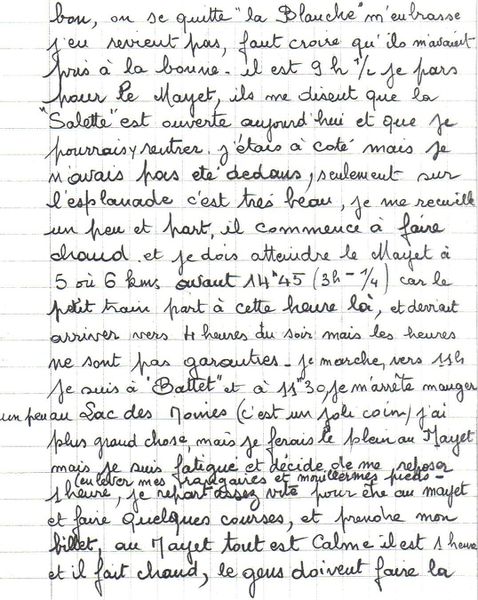 bon, on se quitte "la Blanche" m'enbrasse
j'en revient pas, faut croire qu'ils m'avaient
pris à la bonne. il est 9h 1/2 je pars
pour le Mayet, ils me disent que la
"Salette" est ouverte aujourd'hui et que je
pourrais y rentrer. j'étais à coté mais je
n'avais pas eté dedans, seulement sur
l'esplanade c'est très beau, je me recueille
un peu et part, il commence à faire
chaud. et je dois atteindre le Mayet à
5 où 6 kms avant 14h45 (3h - 1/4) car le
petit train part à cette heure là, et devrait
arriver vers 4 heures du soir mais les heures
ne sont pas garanties - je marche, vers 11h
je suis à "Battet" et à 11h30, je m'arrête manger
un peu au Lac des Moines (c'est un joli coin) j'ai
plus grand chose, mais je ferais le plein au Mayet
mais je suis fatigué et décide de me reposer
(enlever mes et mes pieds -
1 heure, je repart assez vite pour être au mayet
et faire quelques courses, et prendre mon
billet, au Mayet tout est Calme il est 1 heure
et il fait chaud, le gens doivent faire la